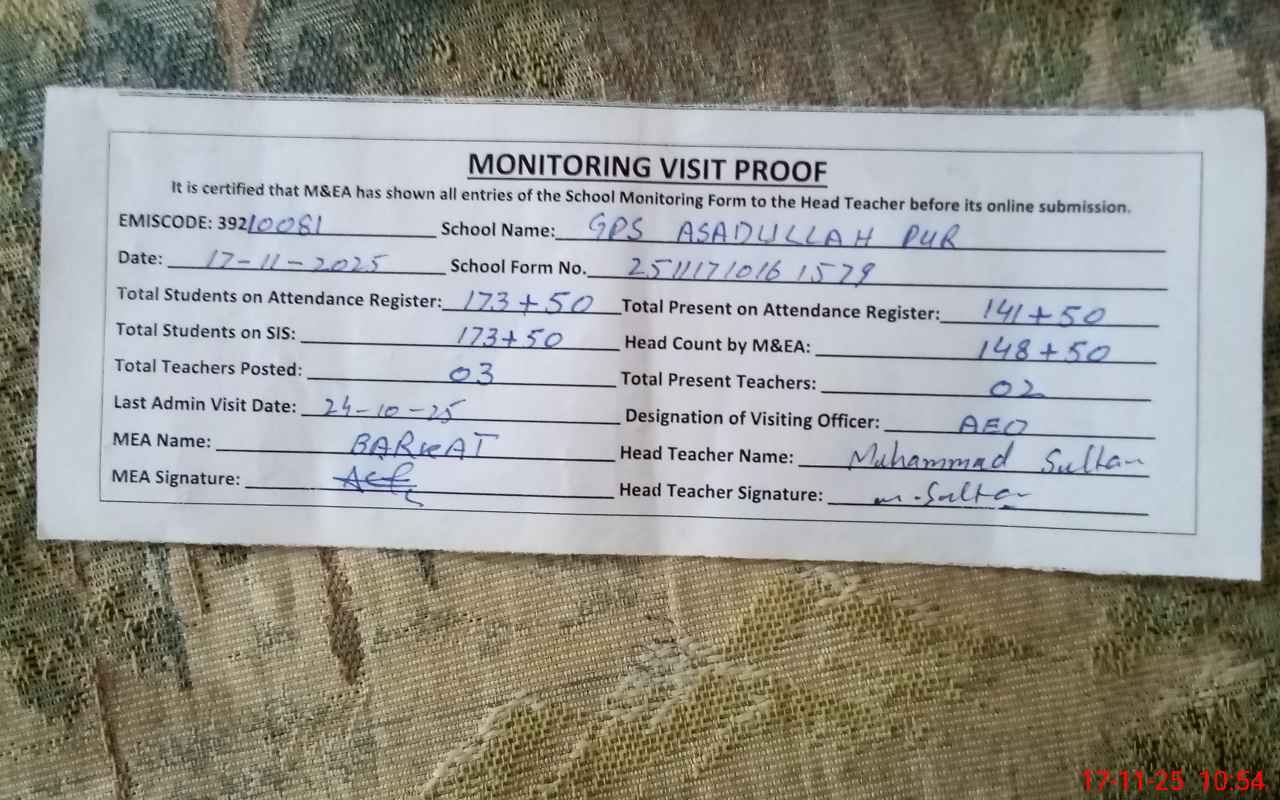 MONITORING VISIT PROOF
It is certified that M&EA has shown all entries of the School Monitoring Form to the Head Teacher before its online submission.
EMISCODE: 39210081 School Name: GPS ASADULLAH PUR
Date: 17-11-2025 School Form No. 2511171016 1579
Total Students on Attendance Register: 173+50 Total Present on Attendance Register: 141+50
Total Students on SIS: 173+50 Head Count by M&EA: 148+50
Total Teachers Posted: 03 Total Present Teachers: 02
Last Admin Visit Date: 24-10-25 Designation of Visiting Officer: AEO
MEA Name: BARKAT Head Teacher Name: Muhammad Sultan
MEA Signature: Head Teacher Signature: m. Sultan
17-11-25 10:54